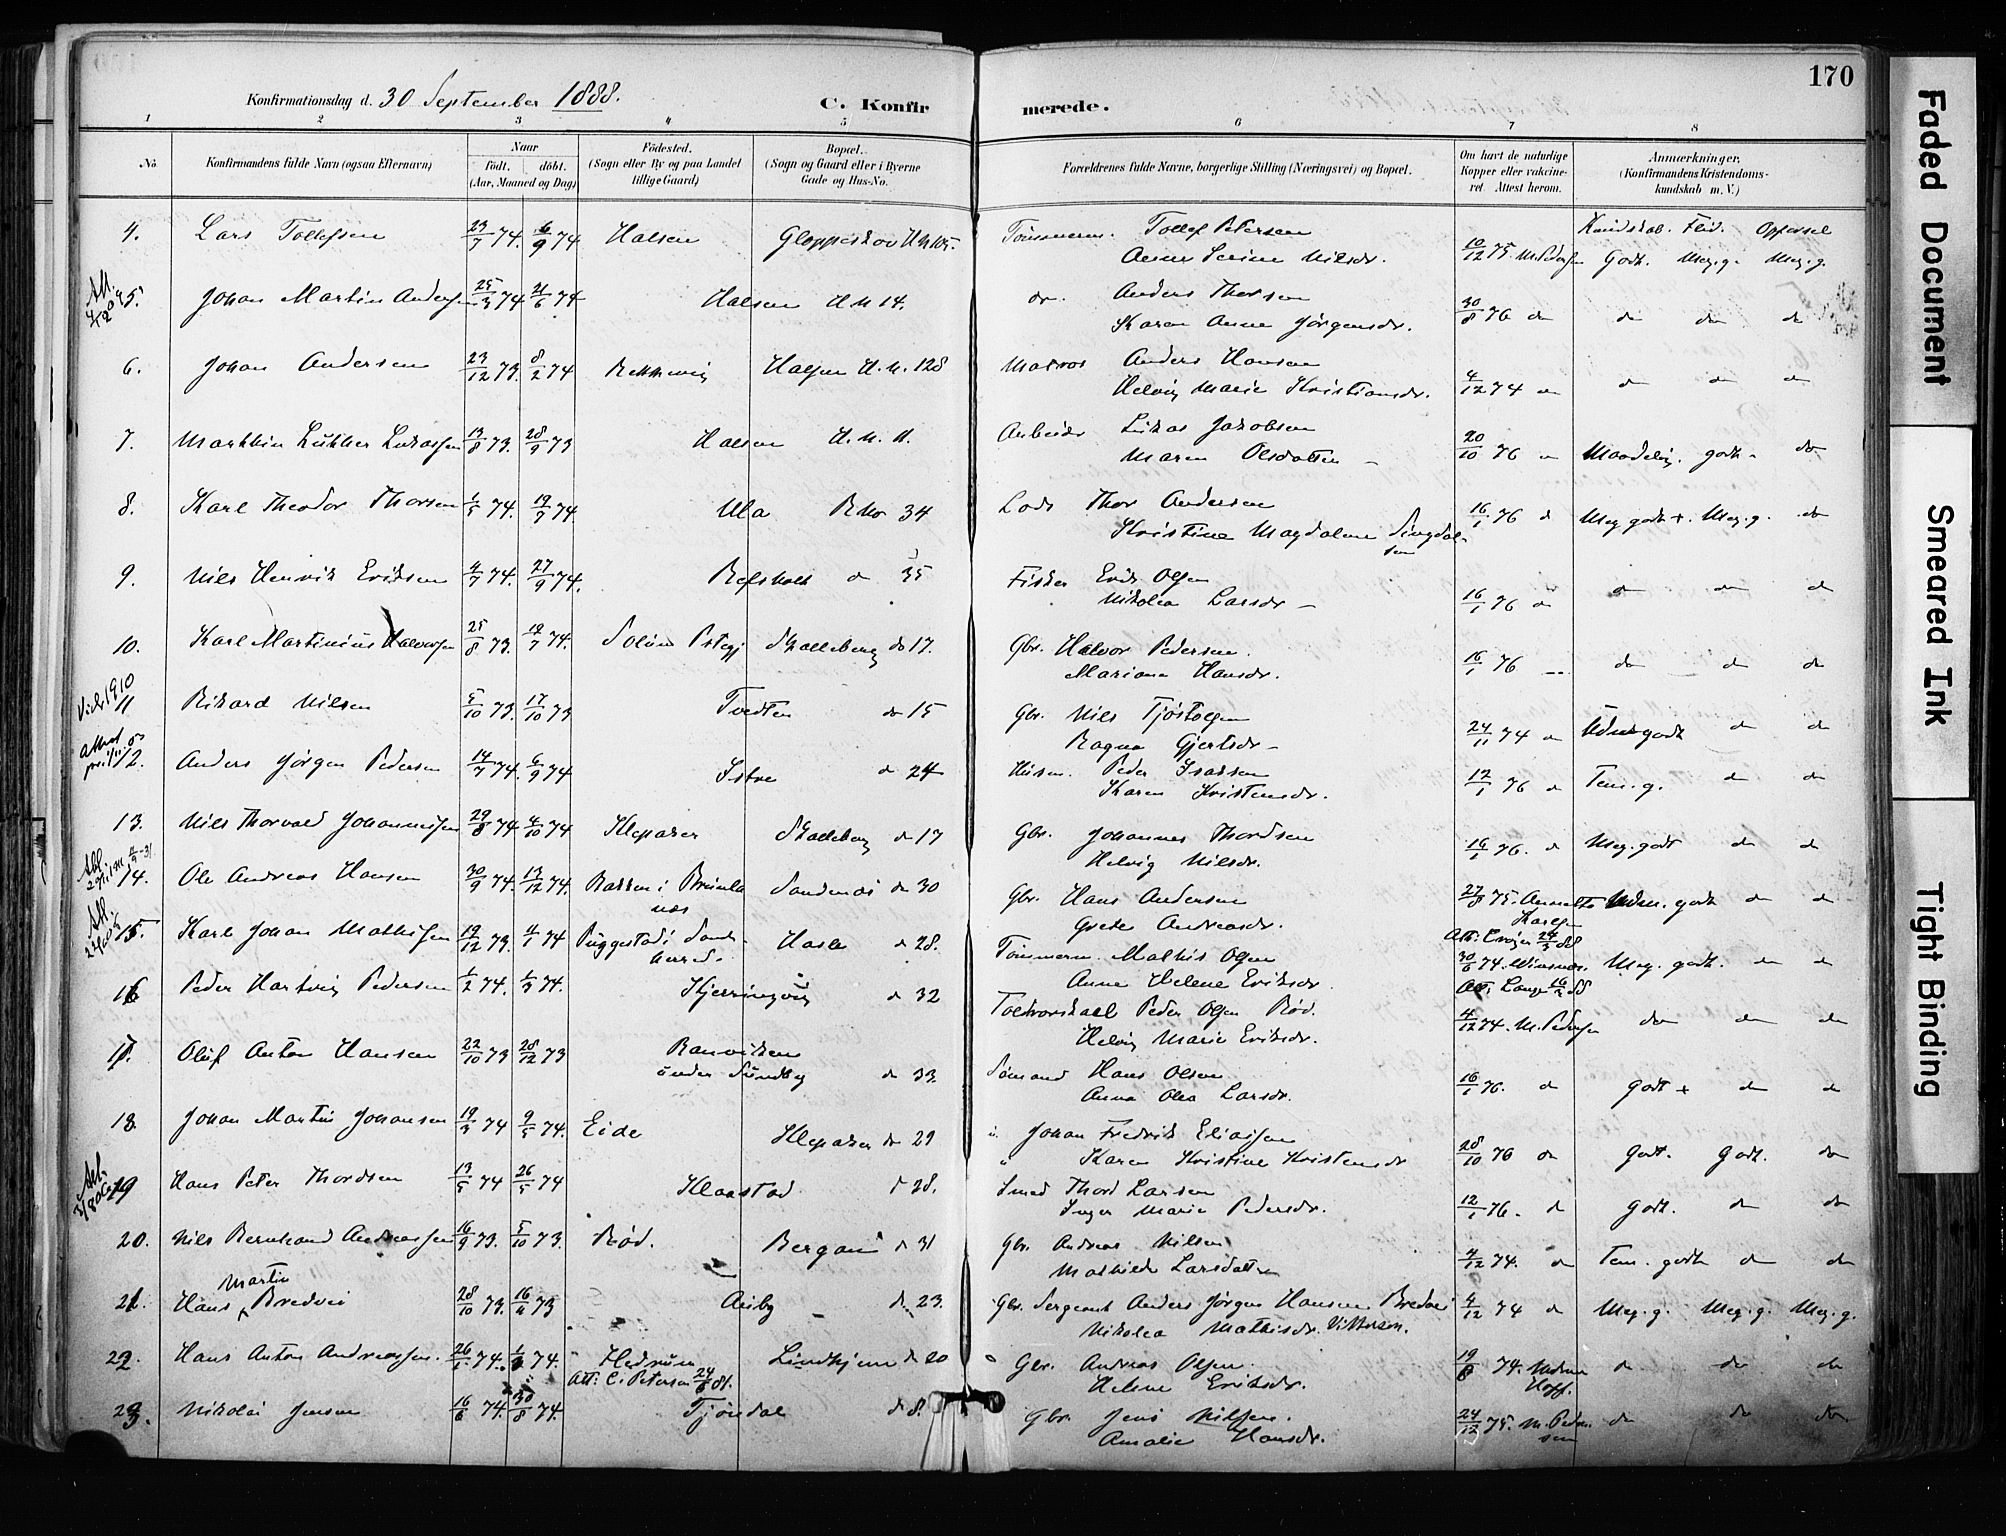 170
Konfirmationsdag d. 30 September 1888. C. Konfirmerede.
1 2 3 4 5 6 7 8
No Konfirmandens fulde Navn (ogsaa Efternavn) Naar født. døbt. (Aar, Maaned og Dag) Fødested. (Sogn eller By og paa Landet tillige Gaard) Bopæl. (Sogn og Gaard eller i Byerne Gade og Hus-No. Forældrenes fulde Navne, borgerlige Stilling (Næringsvei) og Bopæl. Om havt de naturlige Kopper eller vaccineret. Attest herom. Anmærkninger. (Konfirmandens Kristendomskundskab m. V.)
Kundskab. Flid. Opførsel
4. Lars Tollefsen 23/7 74. 6/9 74 Halsen Tømmerm. Tollef Petersen
Anne Serine Nilsdr. 10/12 75. M. Pedersen Godt. Meg. g. Meg. g.
5. Johan Martin Andersen 25/3 74 21/6 74 Halsen H. N 14. do. Anders Thorsen
Karen Anne Jørgensdr. 30/8 76 do do do do
6. Johan Andersen 23/12 73. 8/2 74 Halsen H. N. 128 Matros Anders Hansen
Helvig Marie Kristiansdr. 4/12 74 do do do do
7. Marthin Luther Lukassen 13/8 73. 28/9 73 Halsen H. N. 11. Arbeider Lukas Jakobsen
Maren Olsdatter 20/10 76 Maadelig. godt do
8. Karl Theodor Thorsen 1/5 74. 19/7 74. Ula R No 34 Lods Thor Andersen
Kristine Magdalene Singdalsen 16/1 76 d Meg godt +. Meg. g. do
9. Nils Henrik Eriksen 4/7 74. 27/9 74. Refsholt do 35 Fisker Erik Olsen
Nikolea Larsdr. 16/1 76 do do do do
10. Karl Martinius Halvorsen 25/8 73. 19/7 74. Solum Pstgj Skalleberg do 17. Gbr. Halvor Pedersen.
Mariane Hansdr. 16/1 76 do do do
11 Rikard Nilsen 5/10 73. 17/10 73 Tvedten do 15 Gbr. Nils Tjøstolsen
Ragna Gjertsdr. 24/11 74 do Udm godt do do
12. Anders Jørgen Pedersen 14/7 74. 6/9 74 Istre do 24 Husm. Peder Isaksen
Karen Kristensdr. 12/1 76 do Tem. g. do do
13. Nils Thorvald Johannessen 29/8 74 4/10 74 Klepaker Skalleberg do 17 Gbr. Johannes Thordsen
Helvig Nilsdr. 16/1 76. do Meg. godt do do
14. Ole Andreas Hansen 30/9 74. 13/12 74. Bakken i Brunlanæs Sandnæs do 30 Gbr. Hans Andersen
Grete Andreasdr. 27/8 75. Udm. godt do do
15. Karl Johan Mathisen 19/12 73. 4/1 74 Puggestad i Sandeherred. Hasle do 28. Tømmerm. Mathis Olsen
Anne Helene Eriksdr. 30/6 74. Meg. godt. do do
16 Peder Hartvig Pedersen 1/2 74. 1/3 74. Kjerringvig do 32 Toldvorskarl Peder Olsen Rød.
Helvig Marie Eriksdr. 4/12 74. M. Pedersen do do do
17. Oluf Anton Hansen 22/10 73 28/12 73 Ranviken under Sundby do 33. Sømand Hans Olsen
Anna Olea Larsdr. 16/1 76. do godt + do do
18. Johan Martin Johansen 19/3 74 9/5 74. Eide Klepaker do 29 Johan Fredrik Eliassen
Karen Kristine Kristensdr 28/10 76 do godt. godt. do
19 Hans Peter Thordsen 13/5 74 26/5 74 Klaastad do 28. Smed Thord Larsen
Inger Marie Pedersdr. 12/1 76. do godt. do do
20. Nils Bernhard Andreassen 16/9 73. 5/10 73. Rød. Bergan do 31 Gbr. Andreas Nilsen
Mathilde Larsdatter 4/12 74. do Tem. godt do do
21. Hans Martin Bredvei 28/10 73. 16/11 73 Auby do 23. Gbr. Sergeant Anders Jørgen Hansen Bredvei
Nikolea Mathisdr. 4/12 74 do Meg. g. Meg. g. Meg. g.
22. Hans Anton Andreassen. 26/1 74. Hedrum Lindhjem do 20 Gbr. Andreas Olsen.
Att: C. Petersen Helene Eriksdr. 74. do do do
23. Nikolai Jensen 16/6 74. 30/8 74. Tjøndal do 8. Gbr. Jens Nilsen.
Amalie Hansdr. 24/12 75. M. Pedersen do do do
Faded Document
Smeared Ink
Tight Binding